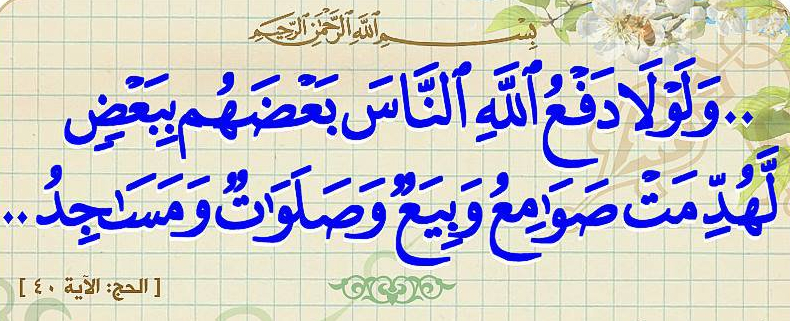 بسم الله الرحمن الرحيم
..وَلَوْلَا دَفْعُ ٱللَّهِ ٱلنَّاسَ بَعْضَهُم بِبَعْضٍ
لَّهُدِّمَتْ صَوَٰمِعُ وَبِيَعٌ وَصَلَوَٰتٌ وَمَسَٰجِدُ..
[ الحج: الآية ٤٠ ]